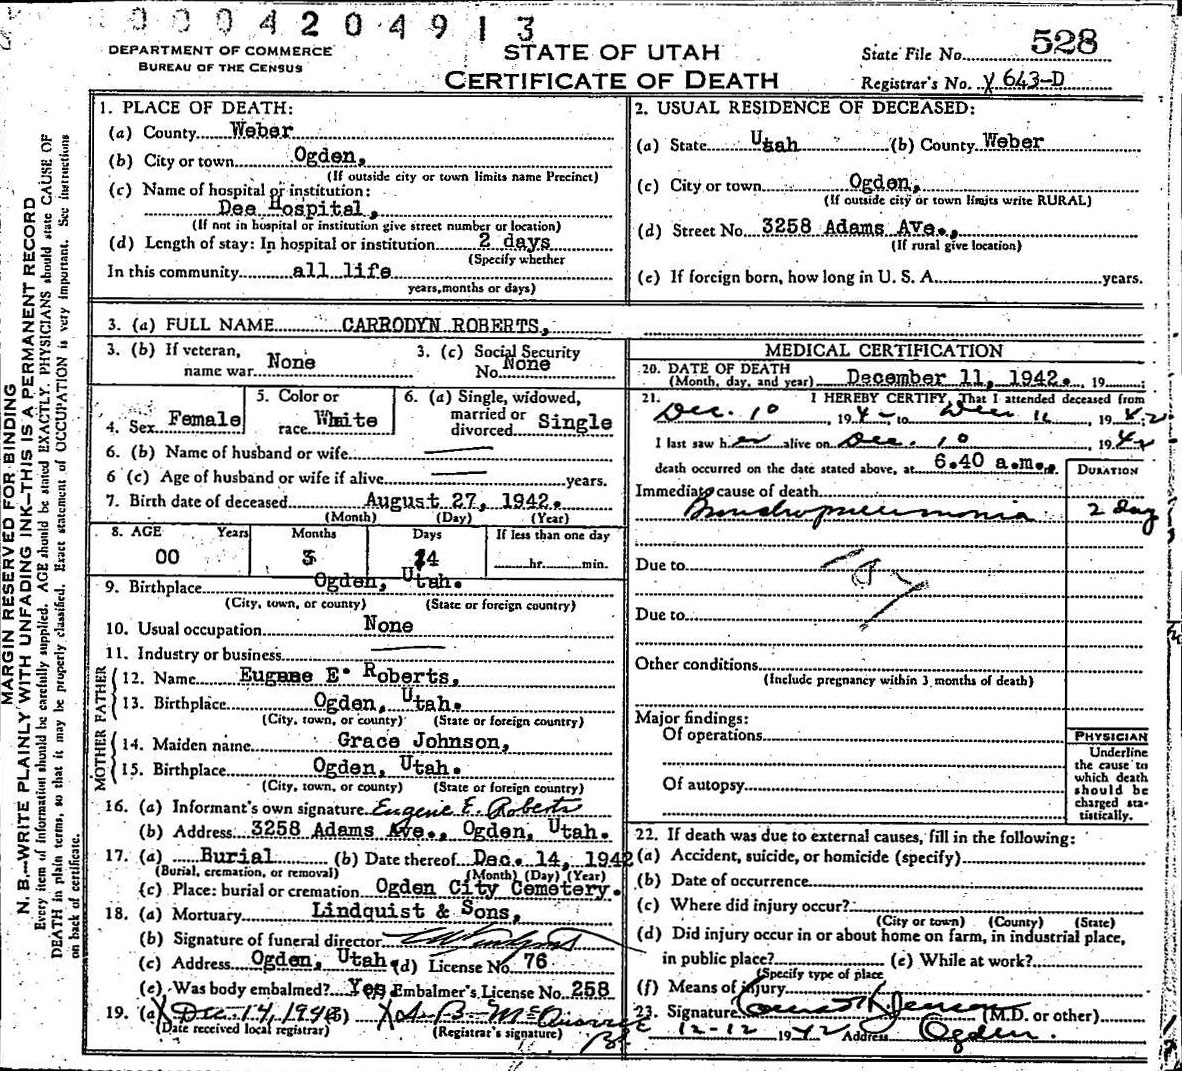 0004204913
DEPARTMENT OF COMMERCE
BUREAU OF THE CENSUS
STATE OF UTAH
CERTIFICATE OF DEATH
State File No. 528
Registrar's No. 643-D
MARGIN RESERVED FOR BINDING
N. B.—WRITE PLAINLY WITH UNFADING INK—THIS IS A PERMANENT RECORD
Every item of information should be carefully supplied. AGE should be stated EXACTLY. PHYSICIANS should state CAUSE OF
DEATH in plain terms, so that it may be properly classified. Exact statement of OCCUPATION is very important. See instructions
on back of certificate.
1. PLACE OF DEATH:
(a) County Weber
(b) City or town Ogden,
(If outside city or town limits name Precinct)
(c) Name of hospital or institution:
Dee Hospital,
(If not in hospital or institution give street number or location)
(d) Length of stay: In hospital or institution 2 days
(Specify whether
In this community all life
years, months or days)
2. USUAL RESIDENCE OF DECEASED:
(a) State Utah (b) County Weber
(c) City or town Ogden,
(If outside city or town limits write RURAL)
(d) Street No. 3258 Adams Ave.,
(If rural give location)
(e) If foreign born, how long in U. S. A. years.
3. (a) FULL NAME CARRODYN ROBERTS,
3. (b) If veteran, name war None
3. (c) Social Security No. None
4. Sex Female
5. Color or race White
6. (a) Single, widowed, married or divorced Single
6. (b) Name of husband or wife
6 (c) Age of husband or wife if alive years.
7. Birth date of deceased August 27, 1942.
(Month) (Day) (Year)
8. AGE Years Months Days If less than one day
00 3 14 hr. min.
9. Birthplace Ogden, Utah.
(City, town, or county) (State or foreign country)
10. Usual occupation None
11. Industry or business
FATHER
12. Name Eugene E. Roberts,
13. Birthplace Ogden, Utah.
(City, town, or county) (State or foreign country)
MOTHER
14. Maiden name Grace Johnson,
15. Birthplace Ogden, Utah.
(City, town, or county) (State or foreign country)
16. (a) Informant's own signature Eugene E. Roberts
(b) Address 3258 Adams Ave., Ogden, Utah.
17. (a) Burial (b) Date thereof Dec. 14, 1942
(Burial, cremation, or removal) (Month) (Day) (Year)
(c) Place: burial or cremation Ogden City Cemetery.
18. (a) Mortuary Lindquist & Sons,
(b) Signature of funeral director
(c) Address Ogden, Utah. (d) License No. 76
(e) Was body embalmed? Yes Embalmer's License No. 258
19. (a) Dec-14, 1942 (b)
(Date received local registrar) (Registrar's signature)
MEDICAL CERTIFICATION
20. DATE OF DEATH
(Month, day, and year) December 11, 1942. , 19 ;
21. I HEREBY CERTIFY, That I attended deceased from
Dec. 10 , 194 , to Dec 11 , 1942;
I last saw her alive on Dec. 10 , 1942
death occurred on the date stated above, at 6.40 a.m.
DURATION
Immediate cause of death
Bronchopneumonia 2 day
Due to
Due to
Other conditions
(Include pregnancy within 3 months of death)
Major findings:
Of operations
Of autopsy
PHYSICIAN
Underline
the cause to
which death
should be
charged sta-
tistically.
22. If death was due to external causes, fill in the following:
(a) Accident, suicide, or homicide (specify)
(b) Date of occurrence
(c) Where did injury occur?
(City or town) (County) (State)
(d) Did injury occur in or about home on farm, in industrial place,
in public place? (e) While at work?
(Specify type of place
(f) Means of injury
23. Signature (M.D. or other)
12-12 1942 Address Ogden.